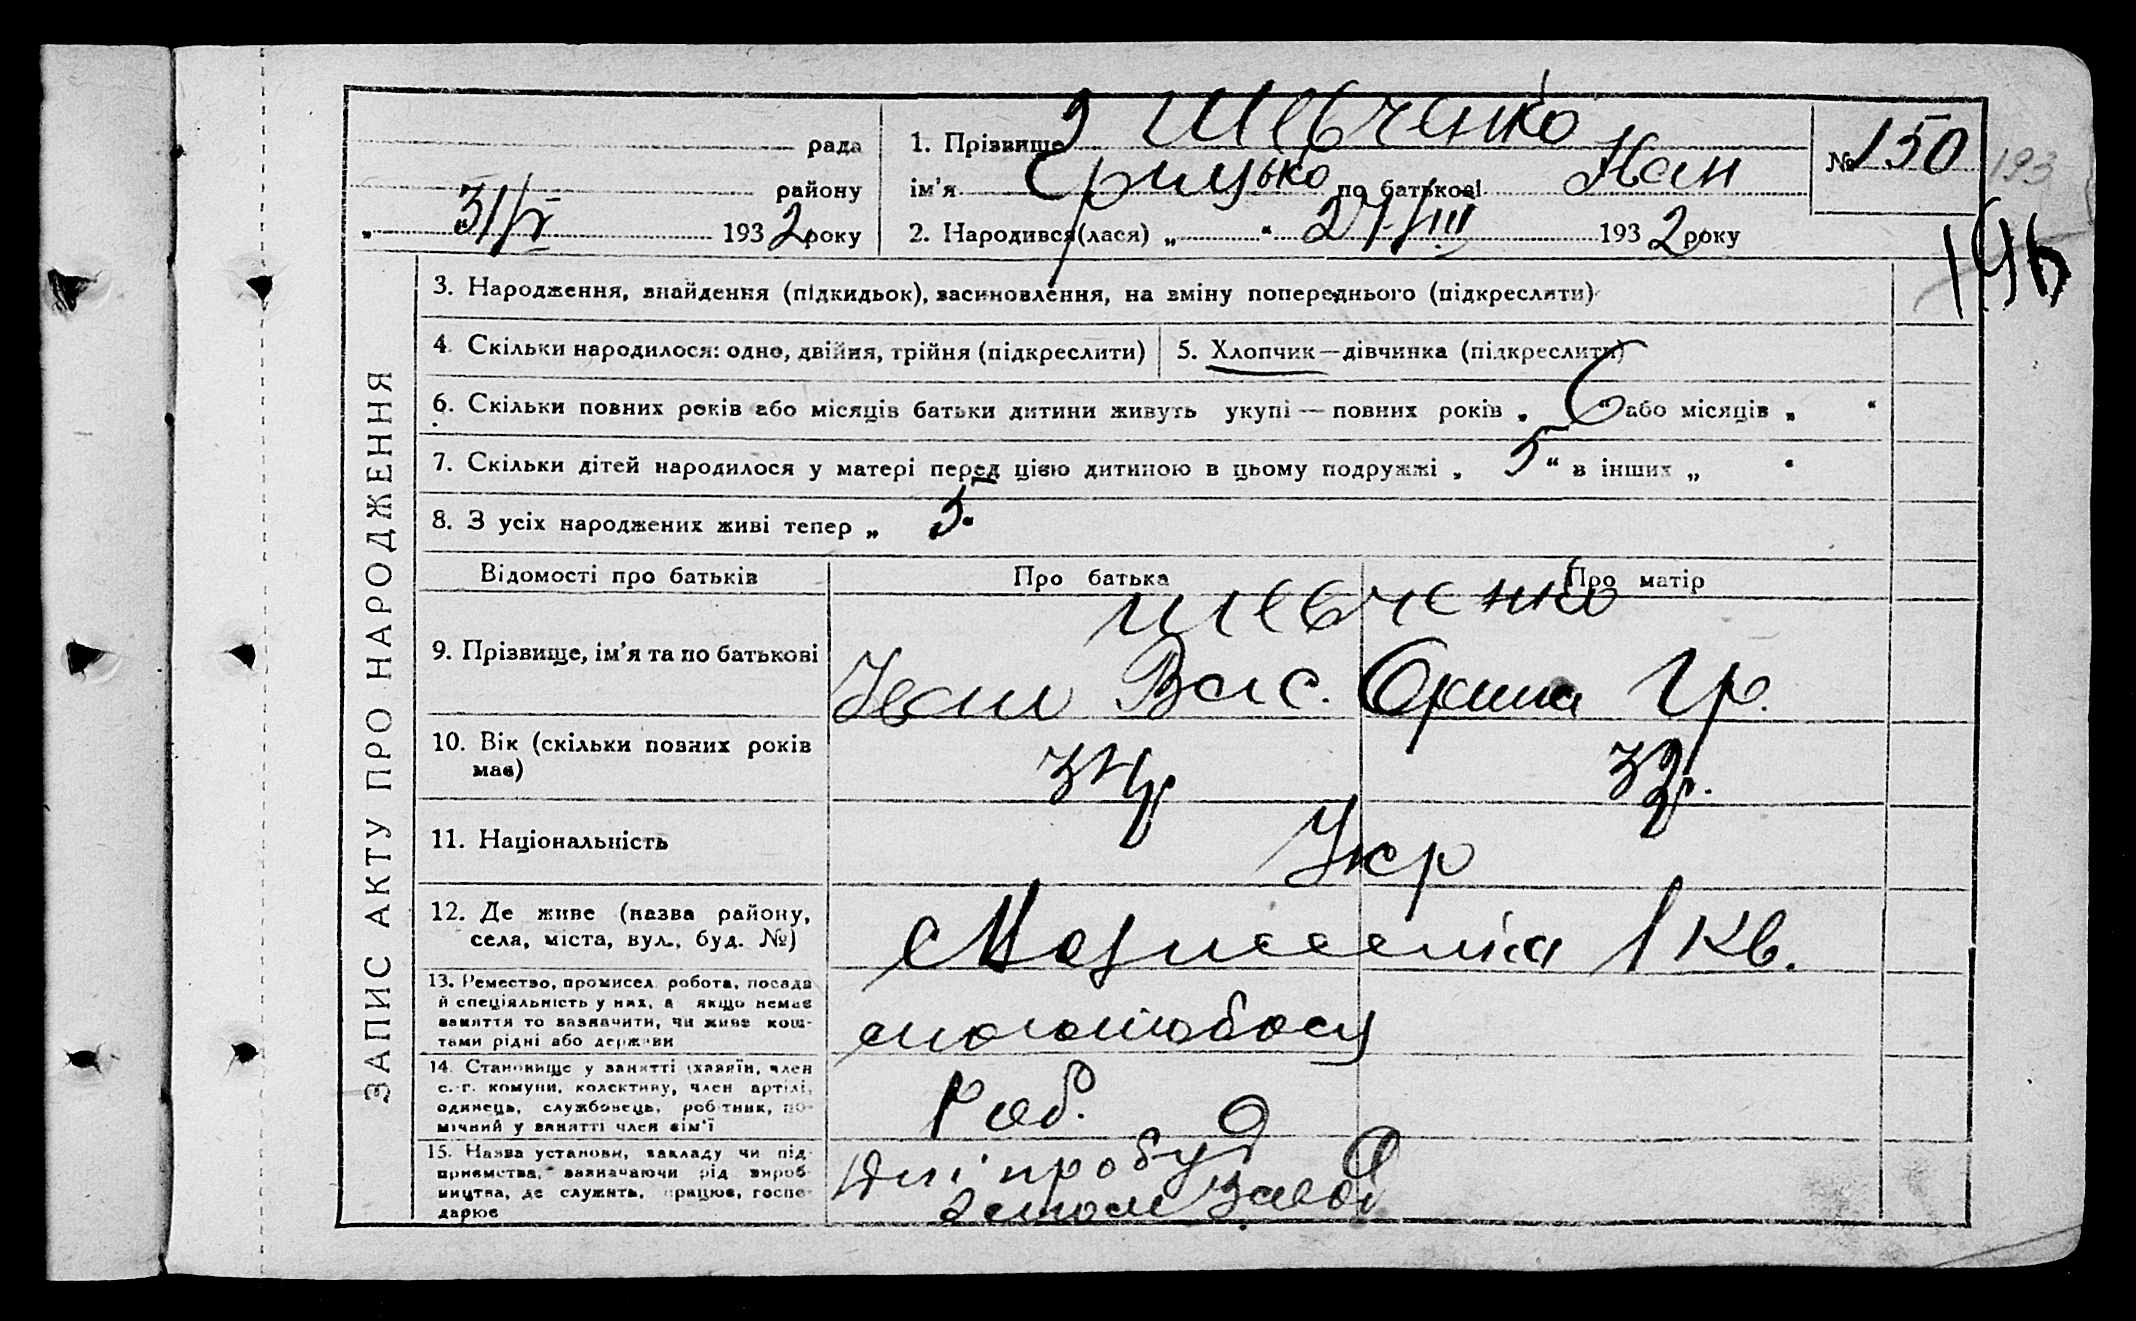 рада
району
„ 31/V 1932 року
1. Прізвище Шевченко
ім'я Грицько по батькові Іван
2. Народився(лася) „ “ 27/III 1932 року
№ 150
193
196
ЗАПИС АКТУ ПРО НАРОДЖЕННЯ
3. Народження, знайдення (підкидьок), засиновлення, на зміну попереднього (підкреслити)
4. Скільки народилося: одно, двійня, трійня (підкреслити)
5. Хлопчик—дівчинка (підкреслити)
6. Скільки повних років або місяців батьки дитини живуть укупі — повних років „ 6 “ або місяців „ “
7. Скільки дітей народилося у матері перед цією дитиною в цьому подружжі „ 5 “ в інших „ “
8. З усіх народжених живі тепер „ 5.
Відомості про батьків
Про батька
Про матір
Шевченко
9. Прізвище, ім'я та по батькові
Іван Вас. Орина Гр.
10. Вік (скільки повних років
має)
34 р
32 р.
11. Національність
Укр
12. Де живе (назва району,
села, міста, вул., буд. №)
1 кв.
13. Ремество, промисел, робота, посада
й спеціяльність у них, а якщо немає
заняття то зазначити, чи живе кош-
тами рідні або держави
14. Становище у занятті (хазяїн, член
с.-г. комуни, колективу, член артілі,
одинець, службовець, робітник, по-
мічний у занятті член сім'ї
Роб.
15. Назва установи, закладу чи під-
приємства, зазначаючи рід вироб-
ництва, де служить, працює, госпо-
дарює
Дніпробуд